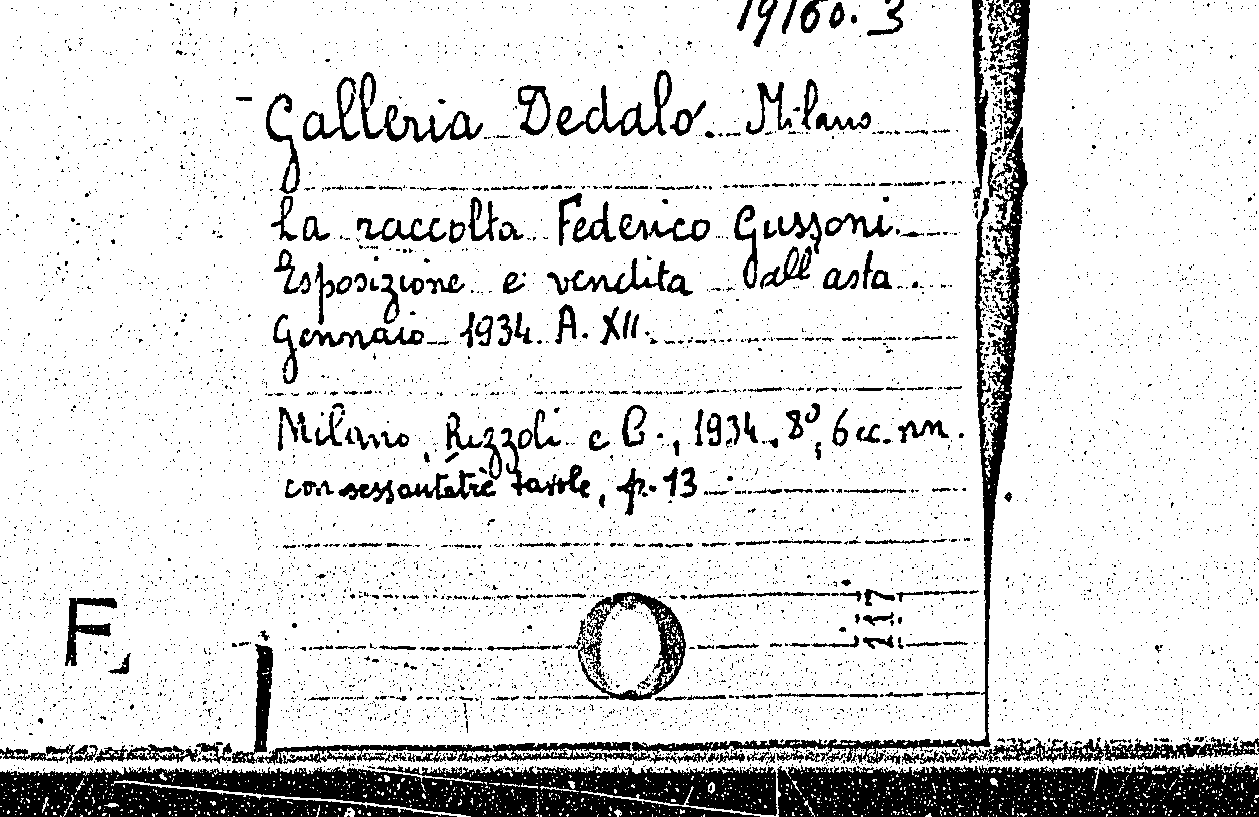 19160.3
Galleria Dedalo. Milano
La raccolta Federico Gussoni.
Esposizione e vendita all'asta.
Gennaio 1934. A. XII.
Milano, Rizzoli e C., 1934, 8º, 6 cc. nn.
con sessantatrè tavole, p. 13
F.
217